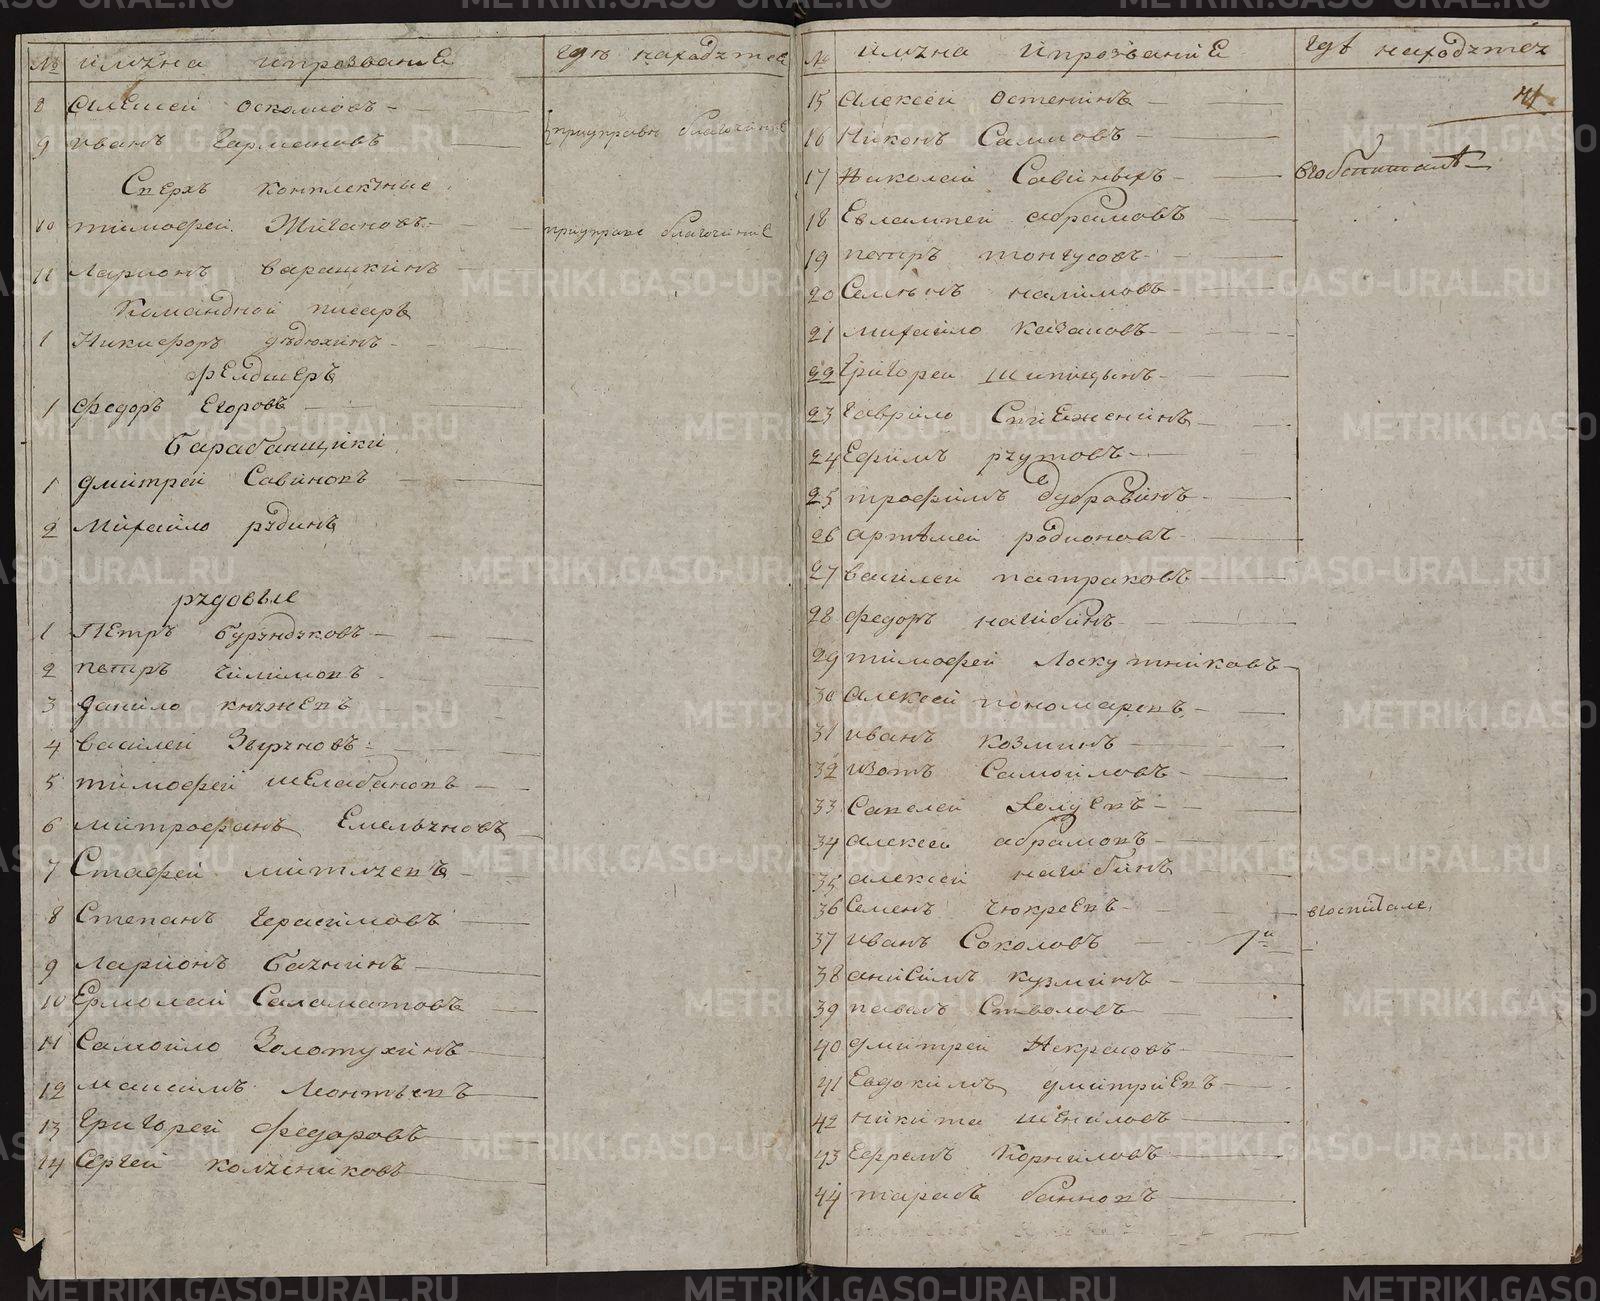 № имяна ипрозвание где находятся
8 алексей осколковъ
9 иванъ Гармоновъ приуправе благочиния
Сверхъ комплектные
10 тимофей Жигановъ приуправе благочиния
11 Ларионъ варашкинъ
Командной писарь
1 Никифоръ дѣдюхинъ
фелдшеръ
1 федоръ Егоровъ
барабанщики
1 дмитрей Савиновъ
2 Михайло рябинъ
рядовые
1 Петръ бурундуковъ
2 петръ
3 данило княжевъ
4 василей Зыряновъ
5 тимофей шелабановъ
6 митрофанъ Емельяновъ
7 Стафей митячевъ
8 Степанъ Герасимовъ
9 Ларионъ
10 Ермолай Саламатовъ
11 Самойло Золотухинъ
12 максимъ Леонтьевъ
13 Григорей федоровъ
14 Сергей колясниковъ
№ имяна ипрозвание где находятся
15 алексей Остенинъ
16 Никонъ
17 Николай Савиныхъ
18 Евлампей абрамовъ
19 петръ тонгусовъ
20 Семенъ налимовъ
21 михайло казаковъ
22 Григорей шипицынъ
23 Гаврило
24 Ефимъ
25 трофимъ дубравинъ
26 артемей родионовъ
27 василей патраковъ
28 федоръ нагибинъ
29 тимофей Лоскутниковъ
30 алексей пономаревъ
31 иванъ козминъ
32 изотъ Самойловъ
33 Савелей
34 алексей абрамовъ
35 алексей нагибинъ
36 Семенъ чюкреевъ вгоспитале
37 иванъ Соколовъ
38 анисимъ кузминъ
39 павелъ Стволовъ
40 дмитрей Некрасовъ
41 Евдокимъ дмитриевъ
42 никита
43 Ефремъ Корниловъ
44 тарасъ банновъ
METRIKI.GASO-URAL.RU